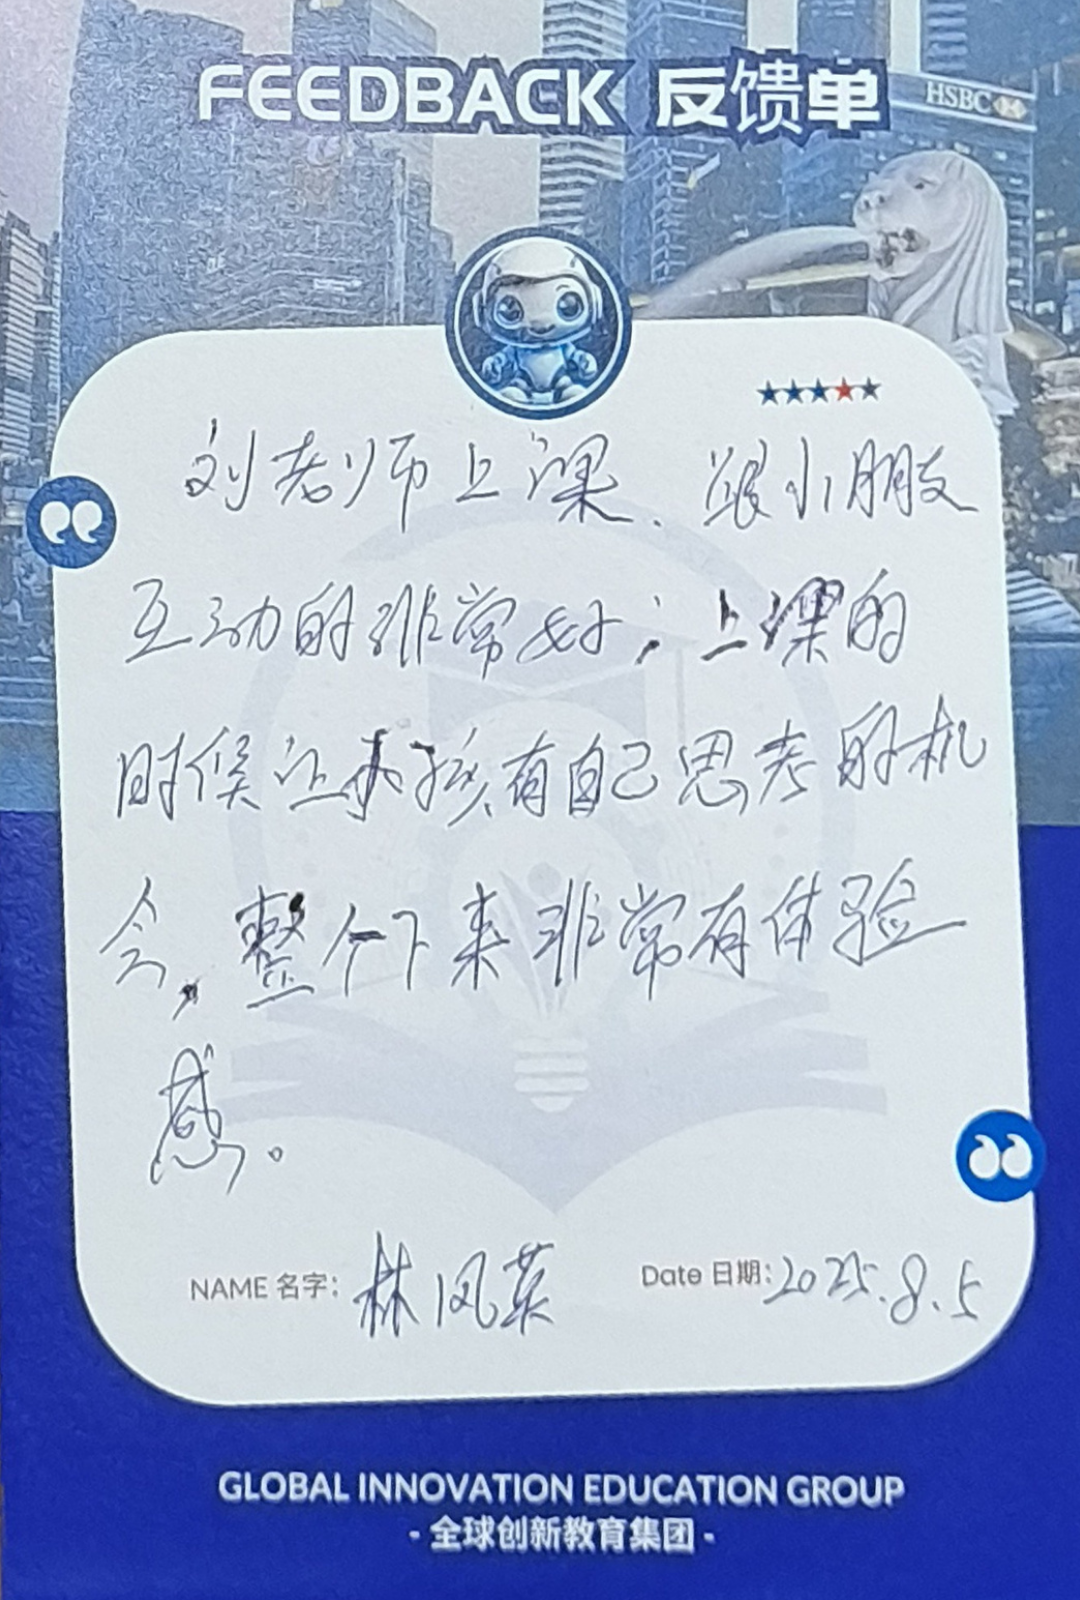 FEEDBACK 反馈单
HSBC
刘老师上课、跟小朋友
互动的非常好；上课的
时候让小孩有自己思考的机
会，整个下来非常有体验
感。
NAME 名字: 林凤英
Date 日期: 2025.8.5
GLOBAL INNOVATION EDUCATION GROUP
- 全球创新教育集团 -